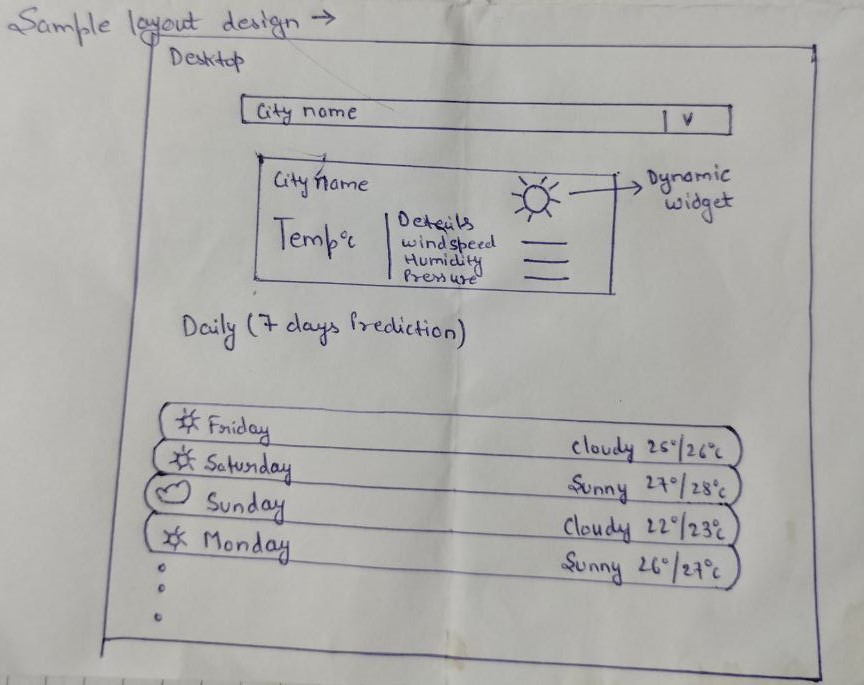 Sample layout design →
Desktop
City name
City name
Dynamic
widget
Temp°c
Details
windspeed
Humidity
Pressure
Daily (7 days Prediction)
Friday Cloudy 25°/26°c
Saturday Sunny 27°/28°c
Sunday Cloudy 22°/23°c
Monday Sunny 26°/27°c